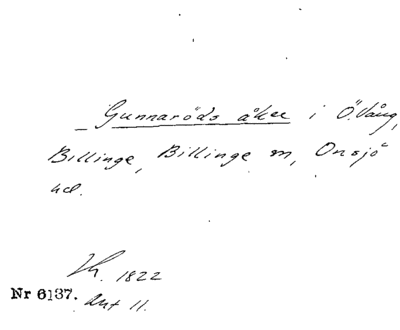 Gunnaröds åker i Ö. Vång,
Billinge, Billinge m, Onsjö
hd.
1822
Nr 6137. Akt 11.